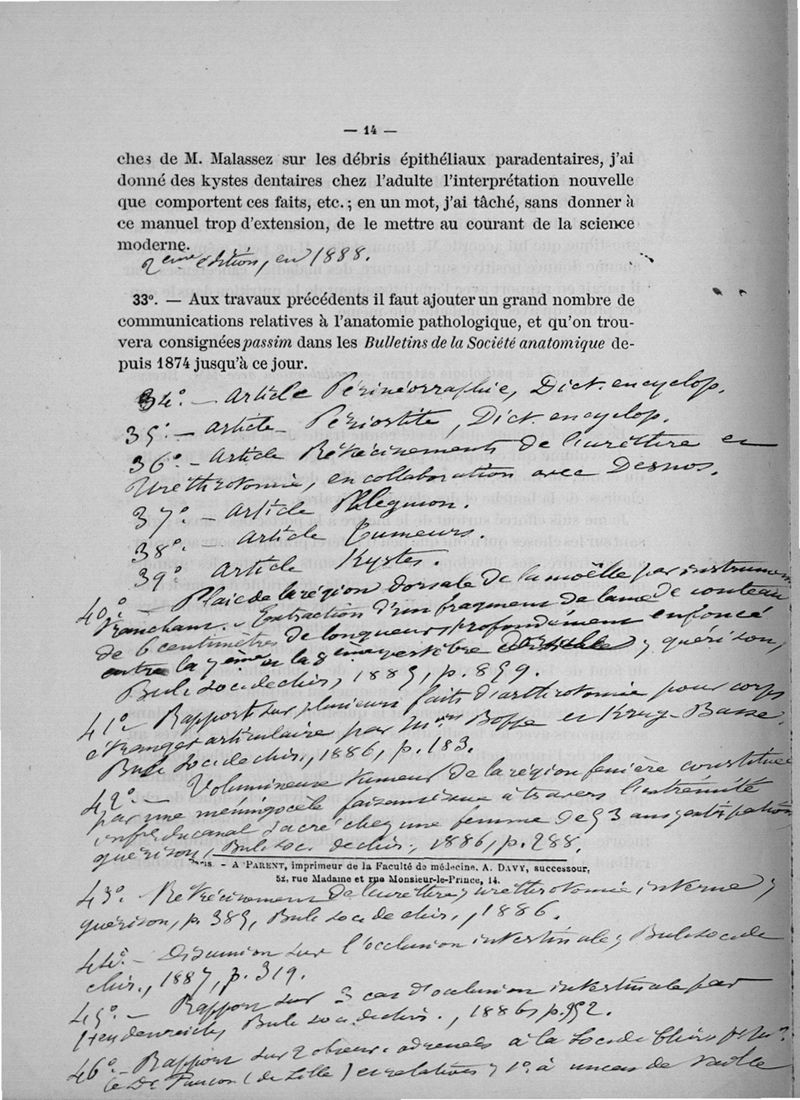 — 14 —
ches de M. Malassez sur les débris épithéliaux paradentaires, j'ai
donné des kystes dentaires chez l'adulte l'interprétation nouvelle
que comportent ces faits, etc.; en un mot, j'ai tâché, sans donner à
ce manuel trop d'extension, de le mettre au courant de la science
moderne.
2ème édition, en 1888.
33°. — Aux travaux précédents il faut ajouter un grand nombre de
communications relatives à l'anatomie pathologique, et qu'on trou-
vera consignées passim dans les Bulletins de la Société anatomique de-
puis 1874 jusqu'à ce jour.
34°. — Article Périnéorraphie, Dict. encyclop.
35°. — Article Périostite, Dict. encyclop.
36°. — Article Rétrécissements de l'urèthre et
Uréthrotomie, en collaboration avec Desnos.
37°. — Article Phlegmon.
38°. — Article Tumeurs.
39° Article Kystes.
40° — Plaie de la région dorsale de la moëlle par instrument
tranchant. Extraction d'un fragment de lame de couteau
de 6 centimètres de longueur, profondément enfoncé
entre la 7ème et la 8ème vertèbre dorsale; guérison,
Bull. soc. de chir., 1885, p. 859.
41° — Rapport sur plusieurs faits d'arthrotomie pour corps
étranger articulaire par Mrs Boppe et Krug-Basse.
Bull. soc. de chir., 1886, p. 183.
42° — Volumineuse tumeur de la région fessière constituée
par une méningocèle faisant issue à travers l'extrémité
infre du canal sacré chez une femme de 53 ans, extirpation,
guérison, Bull. soc. de chir., 1886, p. 288.
Paris. — A PARENT, imprimeur de la Faculté de médecine. A. DAVY, successour,
52, rue Madame et rue Monsieur-le-Prince, 14.
43° Rétrécissement de l'urèthre; uréthrotomie interne;
guérison, p. 385, Bull. soc. de chir., 1886.
44° — Discussion sur l'occlusion intestinale; Bull. soc. de
chir., 1887, p. 319.
45° — Rapport sur 3 cas d'occlusion intestinale par
Heydenreich, Bull. soc. de chir., 1886, p. 952.
46° — Rapport sur 2 observ. adressées à la Soc. de Chir. par Mr
le Dr (de Lille) et relatives; 1° à un cas de